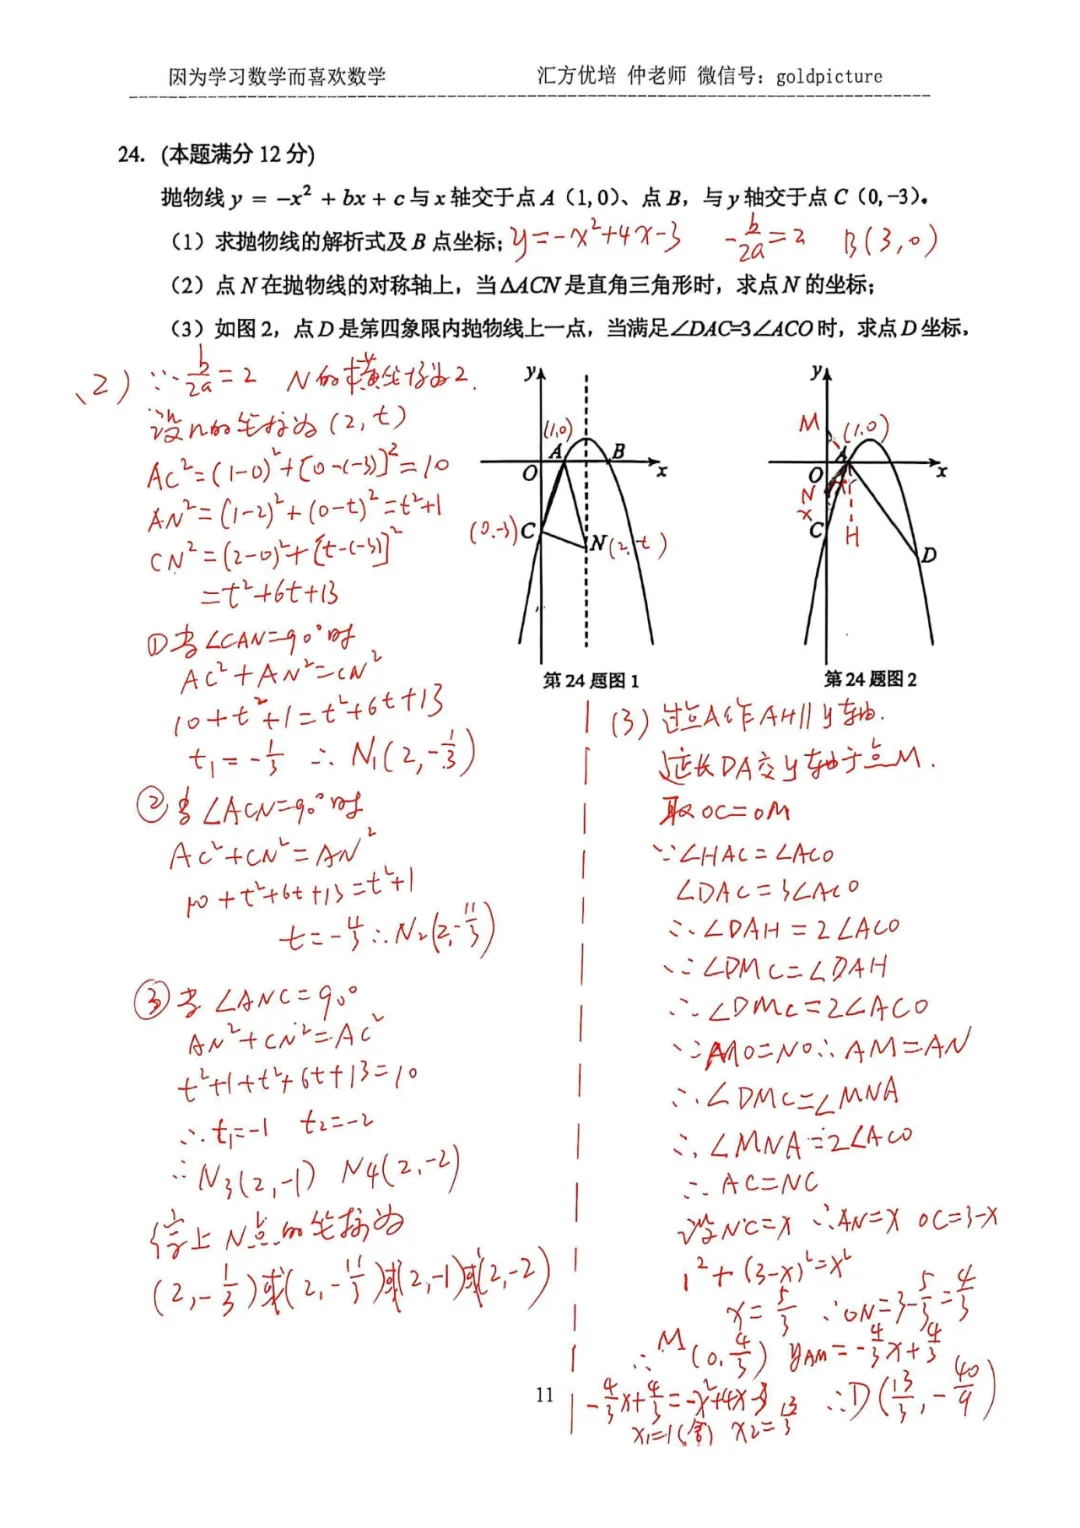 因为学习数学而喜欢数学 汇方优培 仲老师 微信号：goldpicture
24. (本题满分 12 分)
抛物线 y = −x² + bx + c 与 x 轴交于点 A（1,0）、点 B，与 y 轴交于点 C（0,−3）。
（1）求抛物线的解折式及 B 点坐标； y=-x²+4x-3 -b/2a=2 B(3,0)
（2）点 N 在抛物线的对称轴上，当△ACN 是直角三角形时，求点 N 的坐标；
（3）如图 2，点 D 是第四象限内抛物线上一点，当满足∠DAC=3∠ACO 时，求点 D 坐标．
(2) ∵-b/2a=2 N的横坐标为2.
设n的坐标为(2,t)
AC²=(1-0)²+[0-(-3)]²=10
AN²=(1-2)²+(0-t)²=t²+1
CN²=(2-0)²+[t-(-3)]²
=t²+6t+13
①当∠CAN=90°时
AC²+AN²=CN²
10+t²+1=t²+6t+13
t₁=-1/3 ∴N₁(2,-1/3)
②当∠ACN=90°时
AC²+CN²=AN²
10+t²+6t+13=t²+1
t=-11/3 ∴N₂(2,-11/3)
③当∠ANC=90°
AN²+CN²=AC²
t²+1+t²+6t+13=10
∴t₁=-1 t₂=-2
∴N₃(2,-1) N₄(2,-2)
综上N点的坐标为
(2,-1/3)或(2,-11/3)或(2,-1)或(2,-2)
y
(1,0)
A
B
O
x
(0,-3)
C
N(2,t)
第 24 题图 1
y
M
(1,0)
A
O
x
N
x
C
H
D
第 24 题图 2
(3) 过点A作AH∥y轴.
延长DA交y轴于点M.
取OC=OM
∵∠HAC=∠ACO
∠DAC=3∠ACO
∴∠DAH=2∠ACO
∵∠DMC=∠DAH
∴∠DMC=2∠ACO
∵MO=NO∴AM=AN
∴∠DMC=∠MNA
∴∠MNA=2∠ACO
∴AC=NC
设NC=x ∴AN=x OC=3-x
1²+(3-x)²=x²
x=5/3 ∴ON=3-5/3=4/3
∴M(0,4/3) yAM=-4/3x+4/3
-4/3x+4/3=-x²+4x-3 ∴D(13/3,-40/9)
x₁=1(舍) x₂=13/3
11